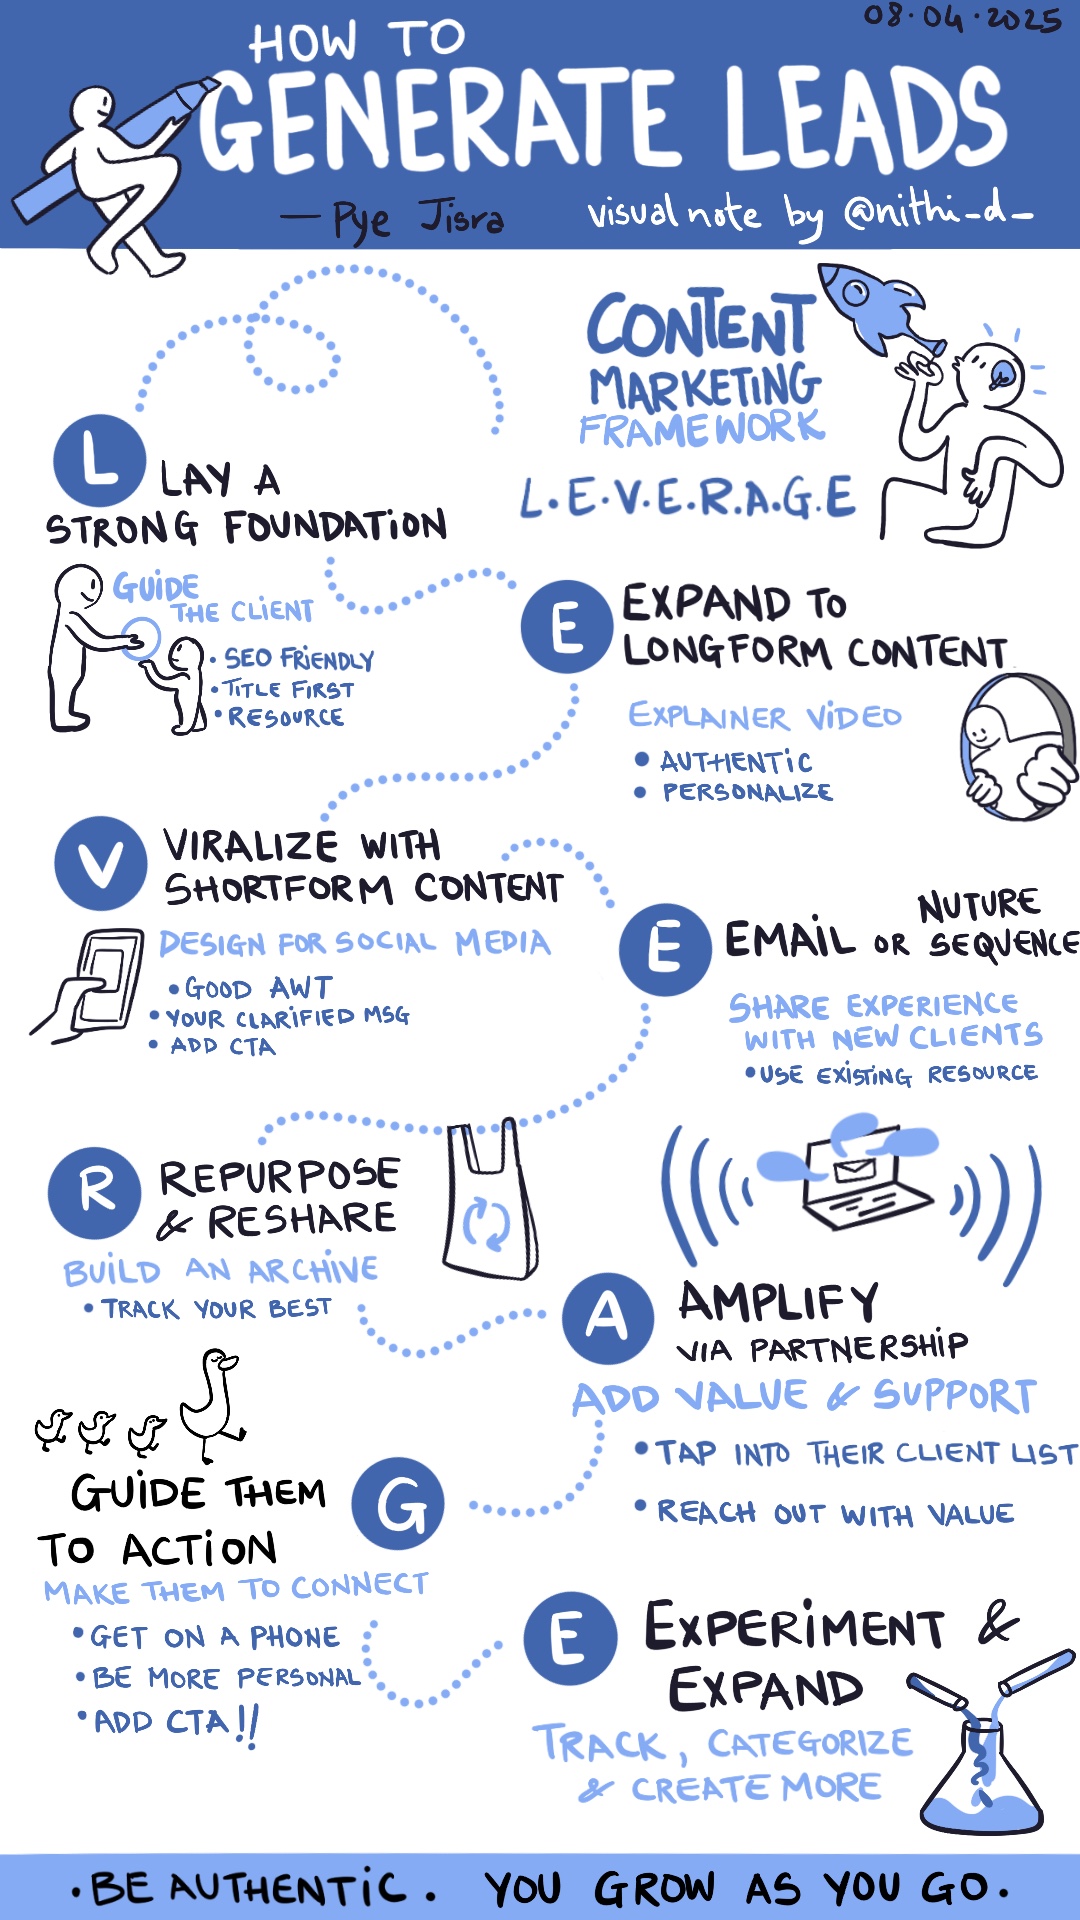 08.04.2025
HOW TO
GENERATE LEADS
— Pye Jisra
visual note by @nithi_d_
CONTENT
MARKETING
FRAMEWORK
L.E.V.E.R.A.G.E
L
LAY A
STRONG FOUNDATION
GUIDE
THE CLIENT
• SEO FRIENDLY
• TITLE FIRST
• RESOURCE
E
EXPAND TO
LONGFORM CONTENT
EXPLAINER VIDEO
• AUTHENTIC
• PERSONALIZE
V
VIRALIZE WITH
SHORTFORM CONTENT
DESIGN FOR SOCIAL MEDIA
• GOOD AWT
• YOUR CLARIFIED MSG
• ADD CTA
E
NUTURE
EMAIL OR SEQUENCE
SHARE EXPERIENCE
WITH NEW CLIENTS
• USE EXISTING RESOURCE
R
REPURPOSE
& RESHARE
BUILD AN ARCHIVE
• TRACK YOUR BEST
A
AMPLIFY
VIA PARTNERSHIP
ADD VALUE & SUPPORT
• TAP INTO THEIR CLIENT LIST
• REACH OUT WITH VALUE
G
GUIDE THEM
TO ACTION
MAKE THEM TO CONNECT
• GET ON A PHONE
• BE MORE PERSONAL
• ADD CTA!!
E
EXPERIMENT &
EXPAND
TRACK, CATEGORIZE
& CREATE MORE
• BE AUTHENTIC. YOU GROW AS YOU GO.